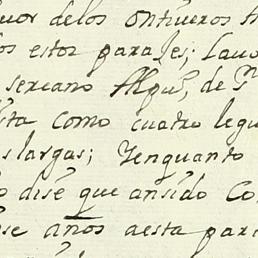 uor delos ontiueros
os estos parajes; Lauo
sercano Alqu<sup>e</sup>, de
ita como cuatro legu
s largas; Yenquanto
dise que ansido Co
se años aesta par